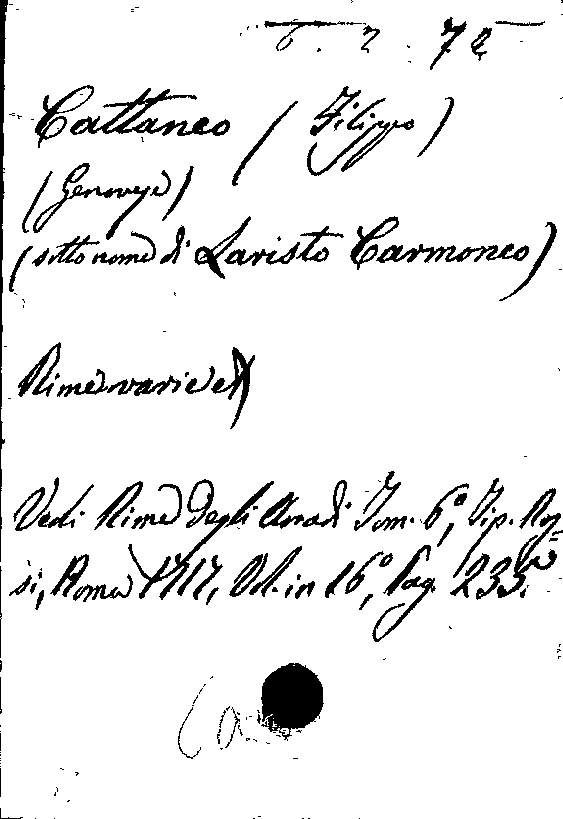 6. 2. 72
Cattaneo (Filippo)
(Genovese)
(sotto nome di Laristo Carmoneo)
Rime varie
Vedi Rime degli Arcadi Tom. 6º, Tip. Ros-
si, Roma 1717, Vol. in 16º, Pag. 235.